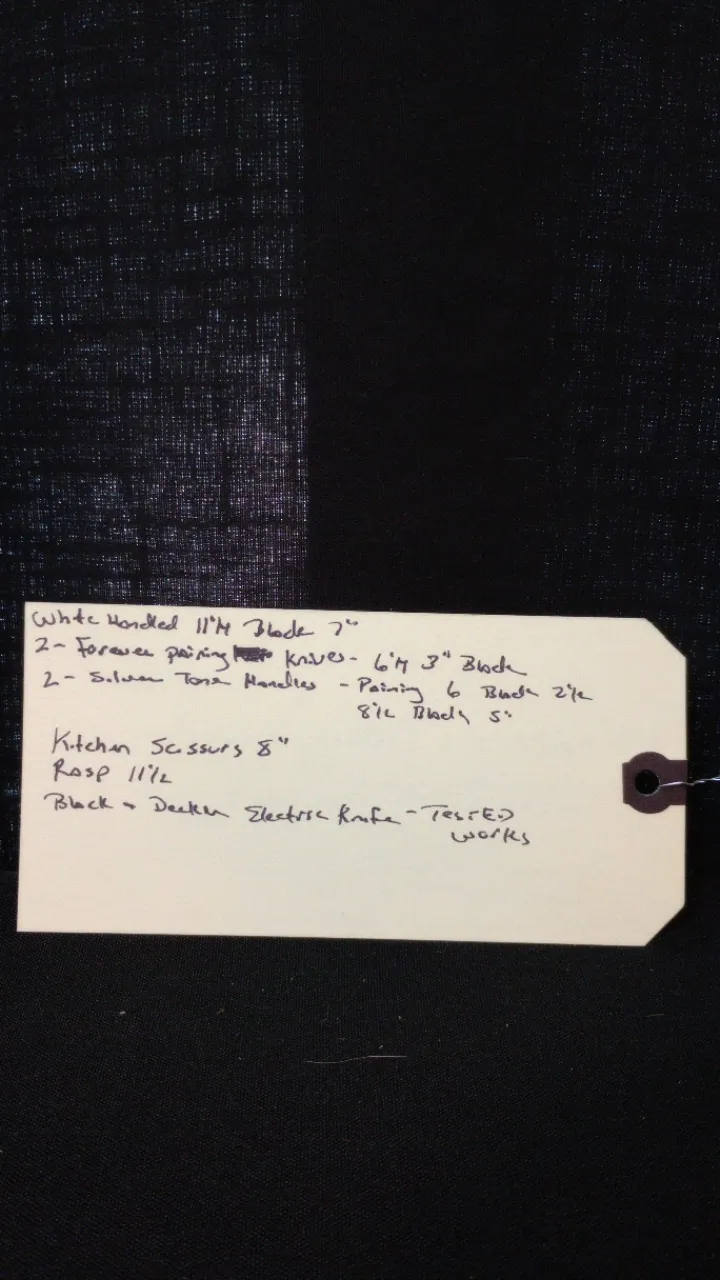 White Handled 11"H Blade 7"
2- Forever pairing Knives- 6"H 3" Blade
2- Silver Tone Handles - Pairing 6 Blade 2½
8½ Blade 5"
Kitchen Scissurs 8"
Rasp 11½
Black + Decker Electric Knife - TestED
works